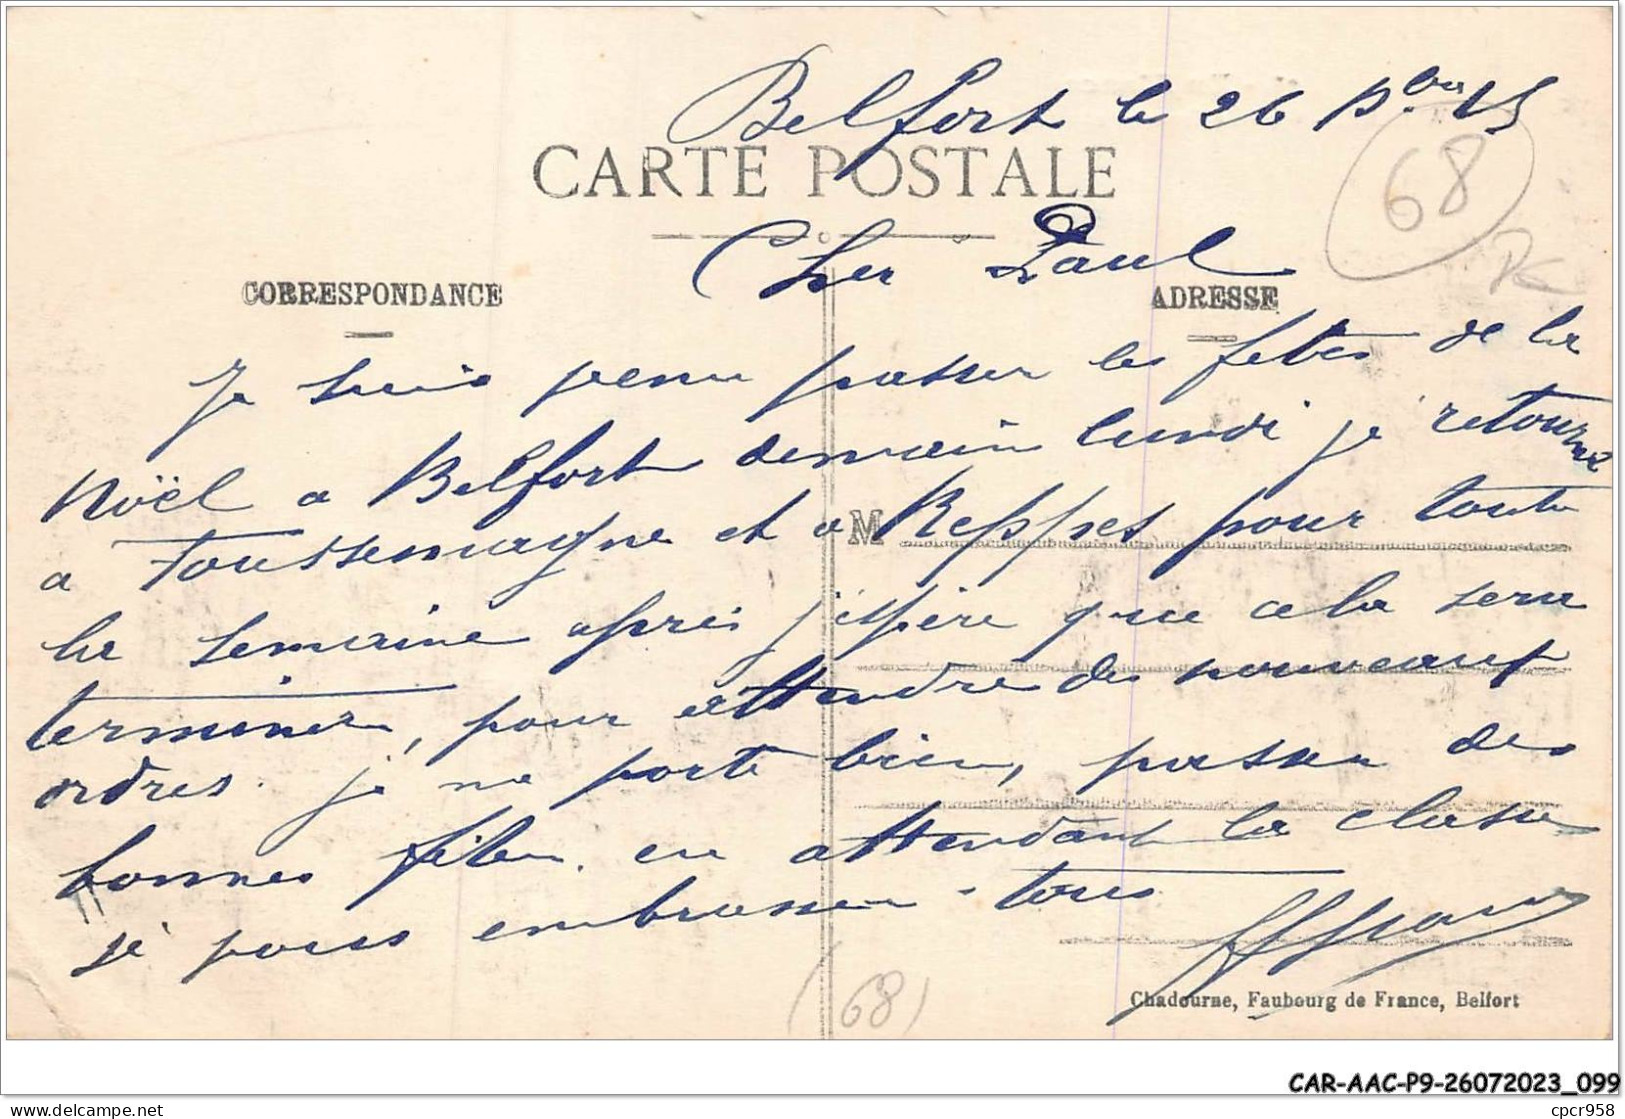 Belfort le 26 Xbre 15
CARTE POSTALE
68
Cher Paul
CORRESPONDANCE
ADRESSE
Je suis venu passer les fetes de la
Noël a Belfort demain lundi je retourne
a Foussemagne et a Reppes pour toute
M
la semaine après j'espère que cela sera
terminer, pour attendre des nouveaux
ordres. je me porte bien, passer des
bonnes fetes. en attendant la classe
je vous embrasser tous
(68)
Chadourne, Faubourg de France, Belfort
CAR-AAC-P9-26072023_099
delcampe.net
cpcr958